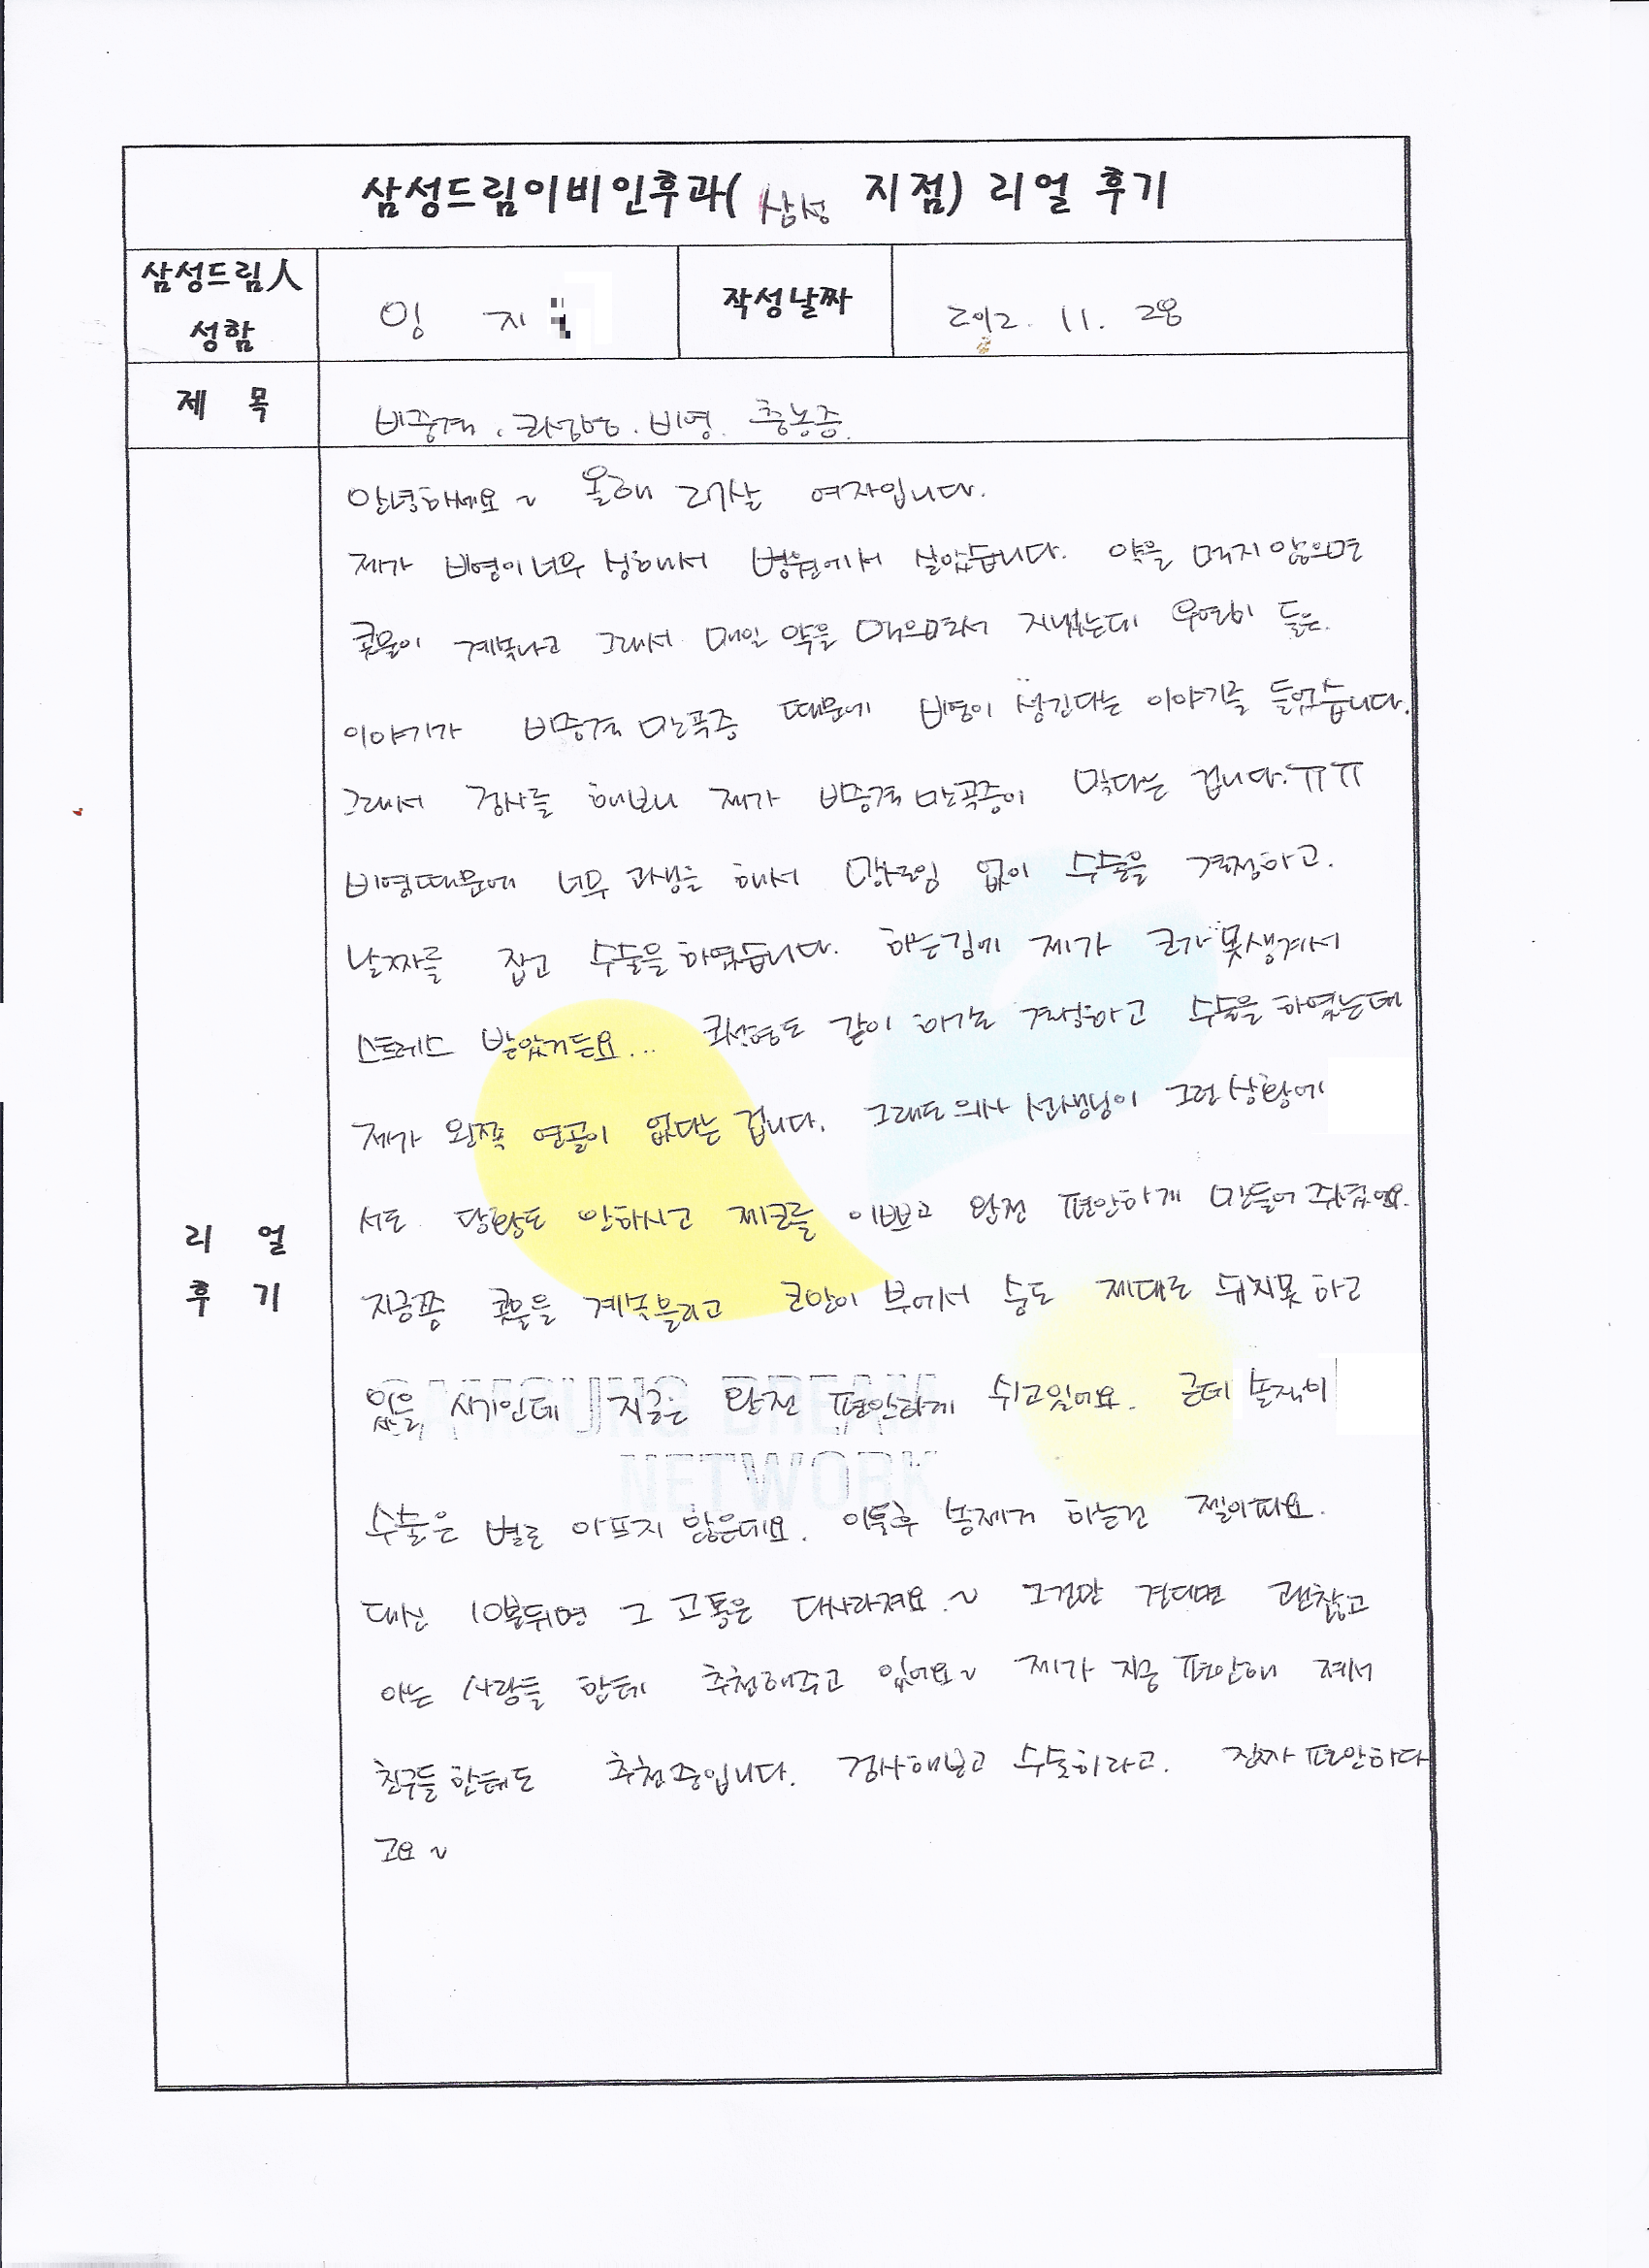 삼성드림이비인후과( 삼성 지점) 리얼 후기
삼성드림人
성함
임 지
작성날짜
2012. 11. 28
제 목
비중격. 코성형. 비염. 축농증.
안녕하세요~ 올해 27살 여자입니다.
제가 비염이 너무 심해서 병원에서 살았습니다. 약을 먹지 않으면
콧물이 계속나고 그래서 매일 약을 먹으면서 지냈는데 우연히 들은.
이야기가 비중격 만곡증 때문에 비염이 생긴다는 이야기를 들었습니다.
그래서 검사를 해보니 제가 비중격 만곡증이 맞다는 겁니다.ㅠㅠ
비염때문에 너무 고생을 해서 망설임 없이 수술을 결정하고.
날짜를 잡고 수술을 하였습니다. 하는김에 제가 코가 못생겨서
스트레스 받았거든요... 코성형도 같이 하기로 결정하고 수술을 하였는데
제가 왼쪽 연골이 없다는 겁니다. 그래도 의사 선생님이 그런 상황에
서도 당황도 안하시고 제코를 이쁘고 완전 편안하게 만들어 주셨어요.
지금쯤 콧물을 계속 흘리고 코안이 부어서 숨도 제대로 쉬지못 하고
있을 시기인데 지금은 완전 편안하게 쉬고있어요. 근데 솔직히
SAMSUNG DREAM
NETWORK
수술은 별로 아프지 않은데요. 이틀후 솜제거 하는건 젤아파요.
대신 10분뒤면 그 고통은 다사라져요.~ 그것만 견디면 괜찮고
아는 사람들 한테 추천해주고 있어요~ 제가 지금 편안해 져서
친구들 한테도 추천중입니다. 검사해보고 수술하라고. 진짜 편안하다
고요~
리 얼
후 기